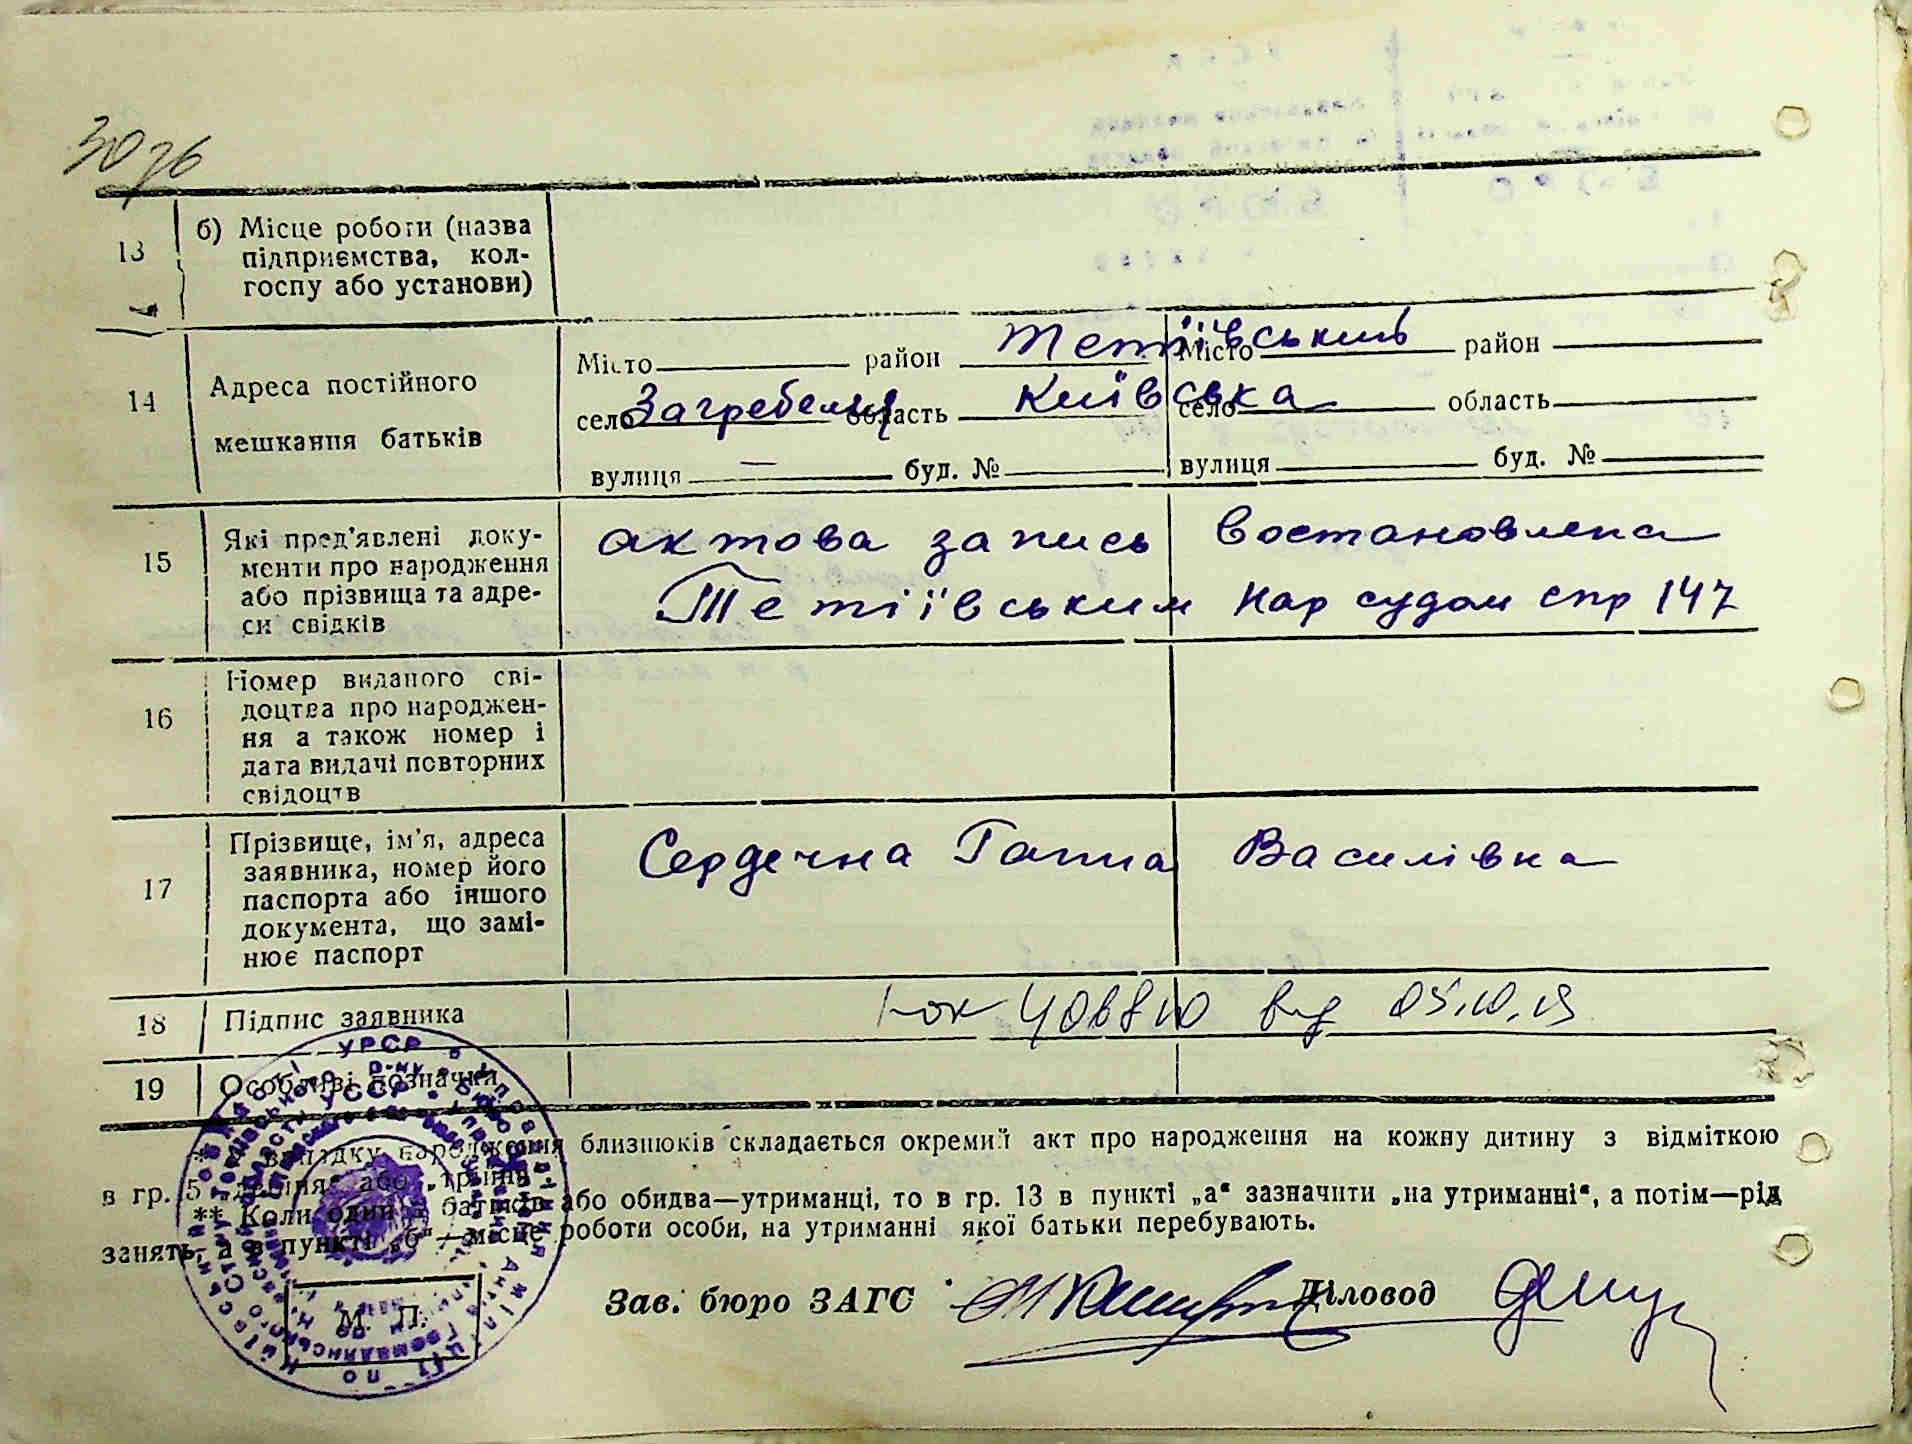 13 б) Місце роботи (назва
підприємства, кол-
госпу або установи)
14 Адреса постійного
мешкання батьків
Місто район Тетіївський Місто район
село Загребелля область Київська село область
вулиця — буд. № вулиця буд. №
15 Які пред'явлені доку-
менти про народження
або прізвища та адре-
си свідків
актова запись востановлена
Тетіївським нар судом спр 147
16 Номер виданого сві-
доцтва про народжен-
ня а також номер і
дата видачі повторних
свідоцтв
17 Прізвище, ім'я, адреса
заявника, номер його
паспорта або іншого
документа, що замі-
нює паспорт
Сердечна Ганна Василівна
18 Підпис заявника
від 05.10.
19 Особливі позначки
* У випадку народження близнюків складається окремий акт про народження на кожну дитину з відміткою
в гр. 5 „двійня" або „трійня"
** Коли один з батьків або обидва—утриманці, то в гр. 13 в пункті „а" зазначити „на утриманні", а потім—рід
занять, а в пункті „б"—місце роботи особи, на утриманні якої батьки перебувають.
Зав. бюро ЗАГС Діловод
М. П.
УРСР